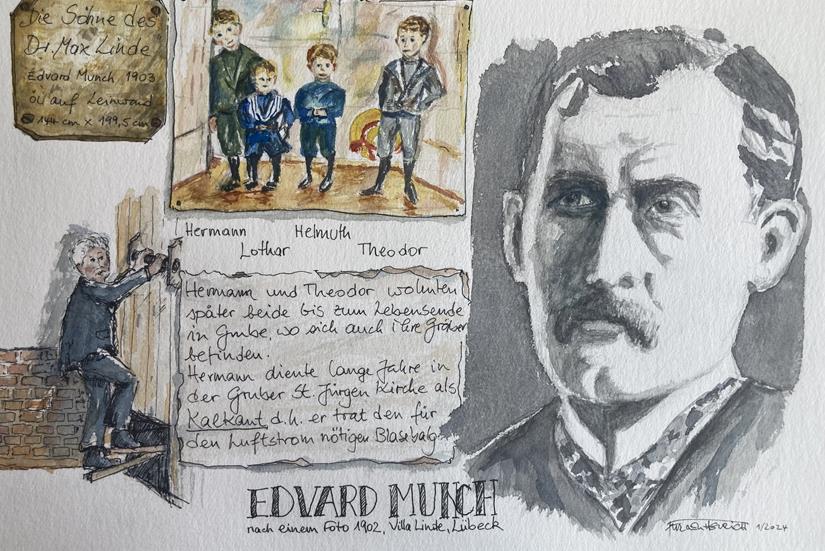 Die Söhne des
Dr. Max Linde
Edvard Munch 1903
öl auf Leinwand
144 cm x 199,5 cm
Hermann Helmuth
Lothar Theodor
Hermann und Theodor wohnten
später beide bis zum Lebensende
in Grube, wo sich auch ihre Gräber
befinden.
Hermann diente lange Jahre in
der Gruber St. Jürgen Kirche als
Kalkant, d.h. er trat den für
den Luftstrom nötigen Blasebalg.
EDVARD MUNCH
nach einem Foto 1902, Villa Linde, Lübeck
1/2024